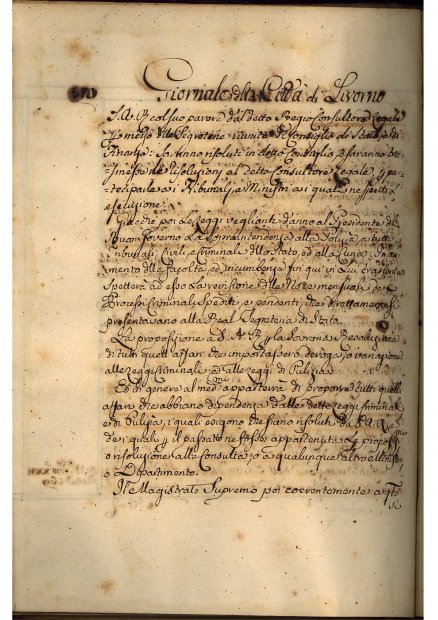 Giornale della Città di Livorno
S.A.R. col suo parere dal detto Regio Consultore Legale
e Finanze: saranno risoluti in detto Consiglio, e saranno
le risoluzioni al detto Consultore Legale, per
participarle ai Tribunali, e Ministri ai quali ne spetti
esecuzione.
Giacchè poi le Leggi veglianti danno al Presidente del
Buon Governo la Soprintendenza alla Polizia, a tutti
Tribunali Civili, e Criminali dello Stato, ed alla Curia: In
mento delle facoltà, ed incumbenze fin qui in Lui
Spetterà ad esso la revisione delle Note mensuali dei
Processi Criminali spediti, e pendenti, che direttamente si
presentavano alla Real Segreteria di Stato.
La proposizione a S.A.R. per la Sovrana Resoluzione
di tutti quelli affari che importassero deroga, o variazione
alle Leggi Criminali, ed alle Leggi di Pulizia.
Ed in genere al med.mo apparterrà di proporre tutti quelli
affari, che abbiano dipendenza dalle dette Leggi Criminali
e di Pulizia, i quali esigono che siano risoluti da S.A.R.
de i quali per il passato ne fosse appartenuta la proposizione
o risoluzione alla Consulta, o a qualunque altro
o Dipartimento.
Il Magistrato Supremo poi coerentemente a